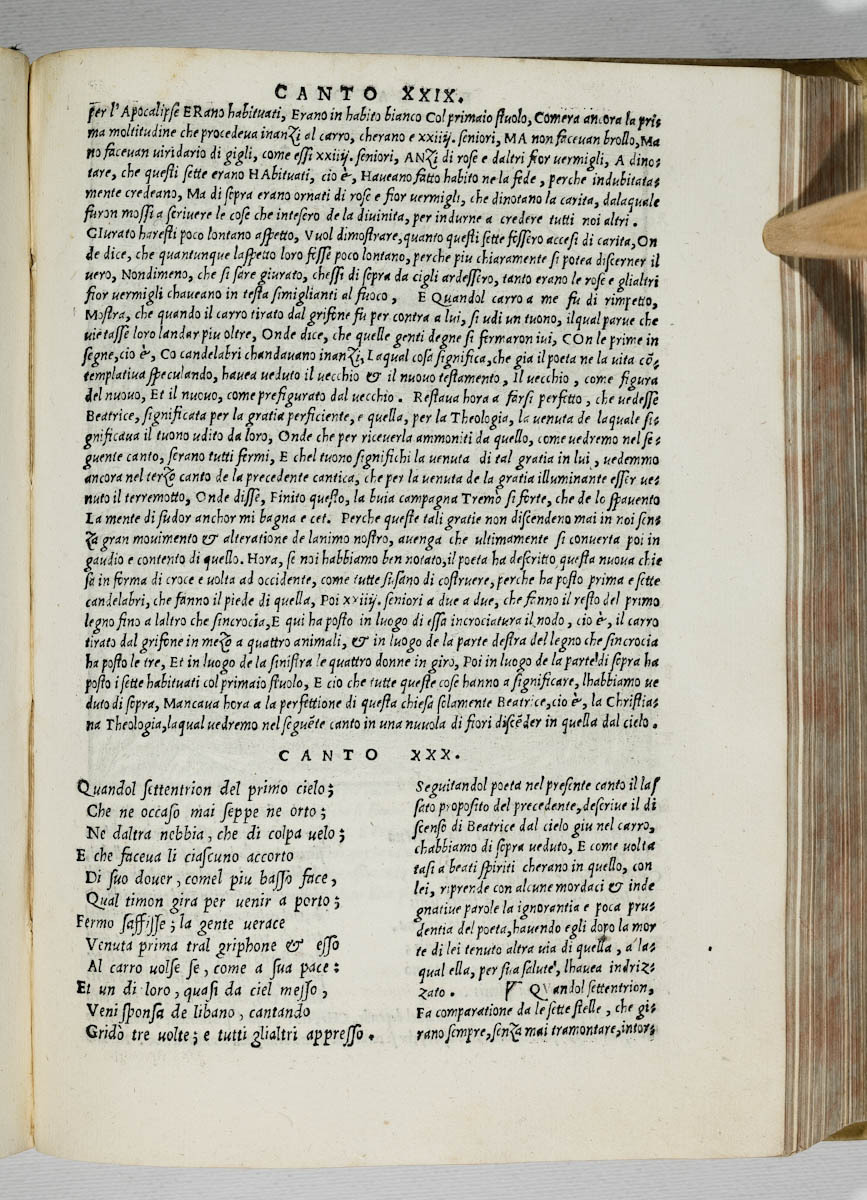 CANTO XXIX.
per l'Apocalipse ERano habituati, Erano in habito bianco Col primaio stuolo, Comera ancora la pri=
ma moltitudine che procedeva inanzi al carro, cherano e xxiiij. seniori, MA non facevan brollo, Ma
no facevan viridario di gigli, come essi xxiiij. seniori, ANZi di rose e daltri fior vermigli, A dino=
tare, che questi sette erano HAbituati, cio è, Haveano fatto habito ne la fede, perche indubitata=
mente credeano, Ma di sopra erano ornati di rose e fior vermigli, che dinotano la carita, dalaquale
furon mossi a scrivere le cose che intesero de la divinita, per indurne a credere tutti noi altri.
GIurato haresti poco lontano aspetto, Vuol dimostrare, quanto questi sette fossero accesi di carita, On
de dice, che quantunque laspetto loro fosse poco lontano, perche piu chiaramente si potea discerner il
vero, Nondimeno, che si sare giurato, chessi di sopra da cigli ardessero, tanto erano le rose e glialtri
fior vermigli chaveano in testa simiglianti al fuoco, E Quandol carro a me fu di rimpetto,
Mostra, che quando il carro tirato dal grifone fu per contra a lui, si udi un tuono, ilqual parue che
vietasse loro landar piu oltre, Onde dice, che quelle genti degne si fermaron ivi, COn le prime in
segne, cio è, Co candelabri chandavano inanzi, Laqual cosa significa, che gia il poeta ne la vita cõ=
templativa speculando, havea veduto il vecchio & il nuovo testamento, Il vecchio, come figura
del nuovo, Et il nuovo, come prefigurato dal vecchio. Restava hora a farsi perfetto, che vedesse
Beatrice, significata per la gratia perficiente, e quella, per la Theologia, la venuta de laquale si=
gnificava il tuono udito da loro, Onde che per riceverla ammoniti da quello, come vedremo nel se=
guente canto, serano tutti fermi, E chel tuono significhi la venuta di tal gratia in lui, vedemmo
ancora nel terzo canto de la precedente cantica, che per la venuta de la gratia illuminante esser ve=
nuto il terremotto, Onde disse, Finito questo, la buia campagna Tremò si forte, che de lo spavento
La mente di sudor anchor mi bagna e cet. Perche queste tali gratie non discendeno mai in noi sen=
za gran movimento & alteratione de lanimo nostro, avenga che ultimamente si converta poi in
gaudio e contento di quello. Hora, se noi habbiamo ben notato, il poeta ha descritto questa nuova chie
sa in forma di croce e volta ad occidente, come tutte si sano di costruere, perche ha posto prima e sette
candelabri, che fanno il piede di quella, Poi xxiiij. seniori a due a due, che fanno il resto del primo
legno fino a laltro che sincrocia, E qui ha posto in luogo di essa incrociatura il nodo, cio è, il carro
tirato dal grifone in mezo a quattro animali, & in luogo de la parte destra del legno che sincrocia
ha posto le tre, Et in luogo de la sinistra le quattro donne in giro, Poi in luogo de la parte di sopra ha
posto i sette habituati col primaio stuolo, E cio che tutte queste cose hanno a significare, lhabbiamo ve
duto di sopra, Mancava hora a la perfettione di questa chiesa solamente Beatrice, cio è, la Christia=
na Theologia, laqual vedremo nel seguẽte canto in una nuvola di fiori discẽder in quella dal cielo.
CANTO XXX.
Quandol settentrion del primo cielo;
Che ne occaso mai seppe ne orto;
Ne daltra nebbia, che di colpa velo;
E che faceva li ciascuno accorto
Di suo dover, comel piu basso face,
Qual timon gira per venir a porto;
Fermo saffisse; la gente verace
Venuta prima tral griphone & esso
Al carro volse se, come a sua pace:
Et un di loro, quasi da ciel messo,
Veni sponsa de libano, cantando
Gridò tre volte; e tutti glialtri appresso.
Seguitandol poeta nel presente canto il las
sato proposito del precedente, descrive il di
scenso di Beatrice dal cielo giu nel carro,
chabbiamo di sopra veduto, E come volta
tasi a beati spiriti cherano in quello, con
lei, riprende con alcune mordaci & inde
gnative parole la ignorantia e poca pru=
dentia del poeta, havendo egli dopo la mor
te di lei tenuto altra via di quella, a la=
qual ella, per sua salute, lhavea indriz=
zato. QVandol settentrion,
Fa comparatione da le sette stelle, che gi=
rano sempre, senza mai tramontare, intor=